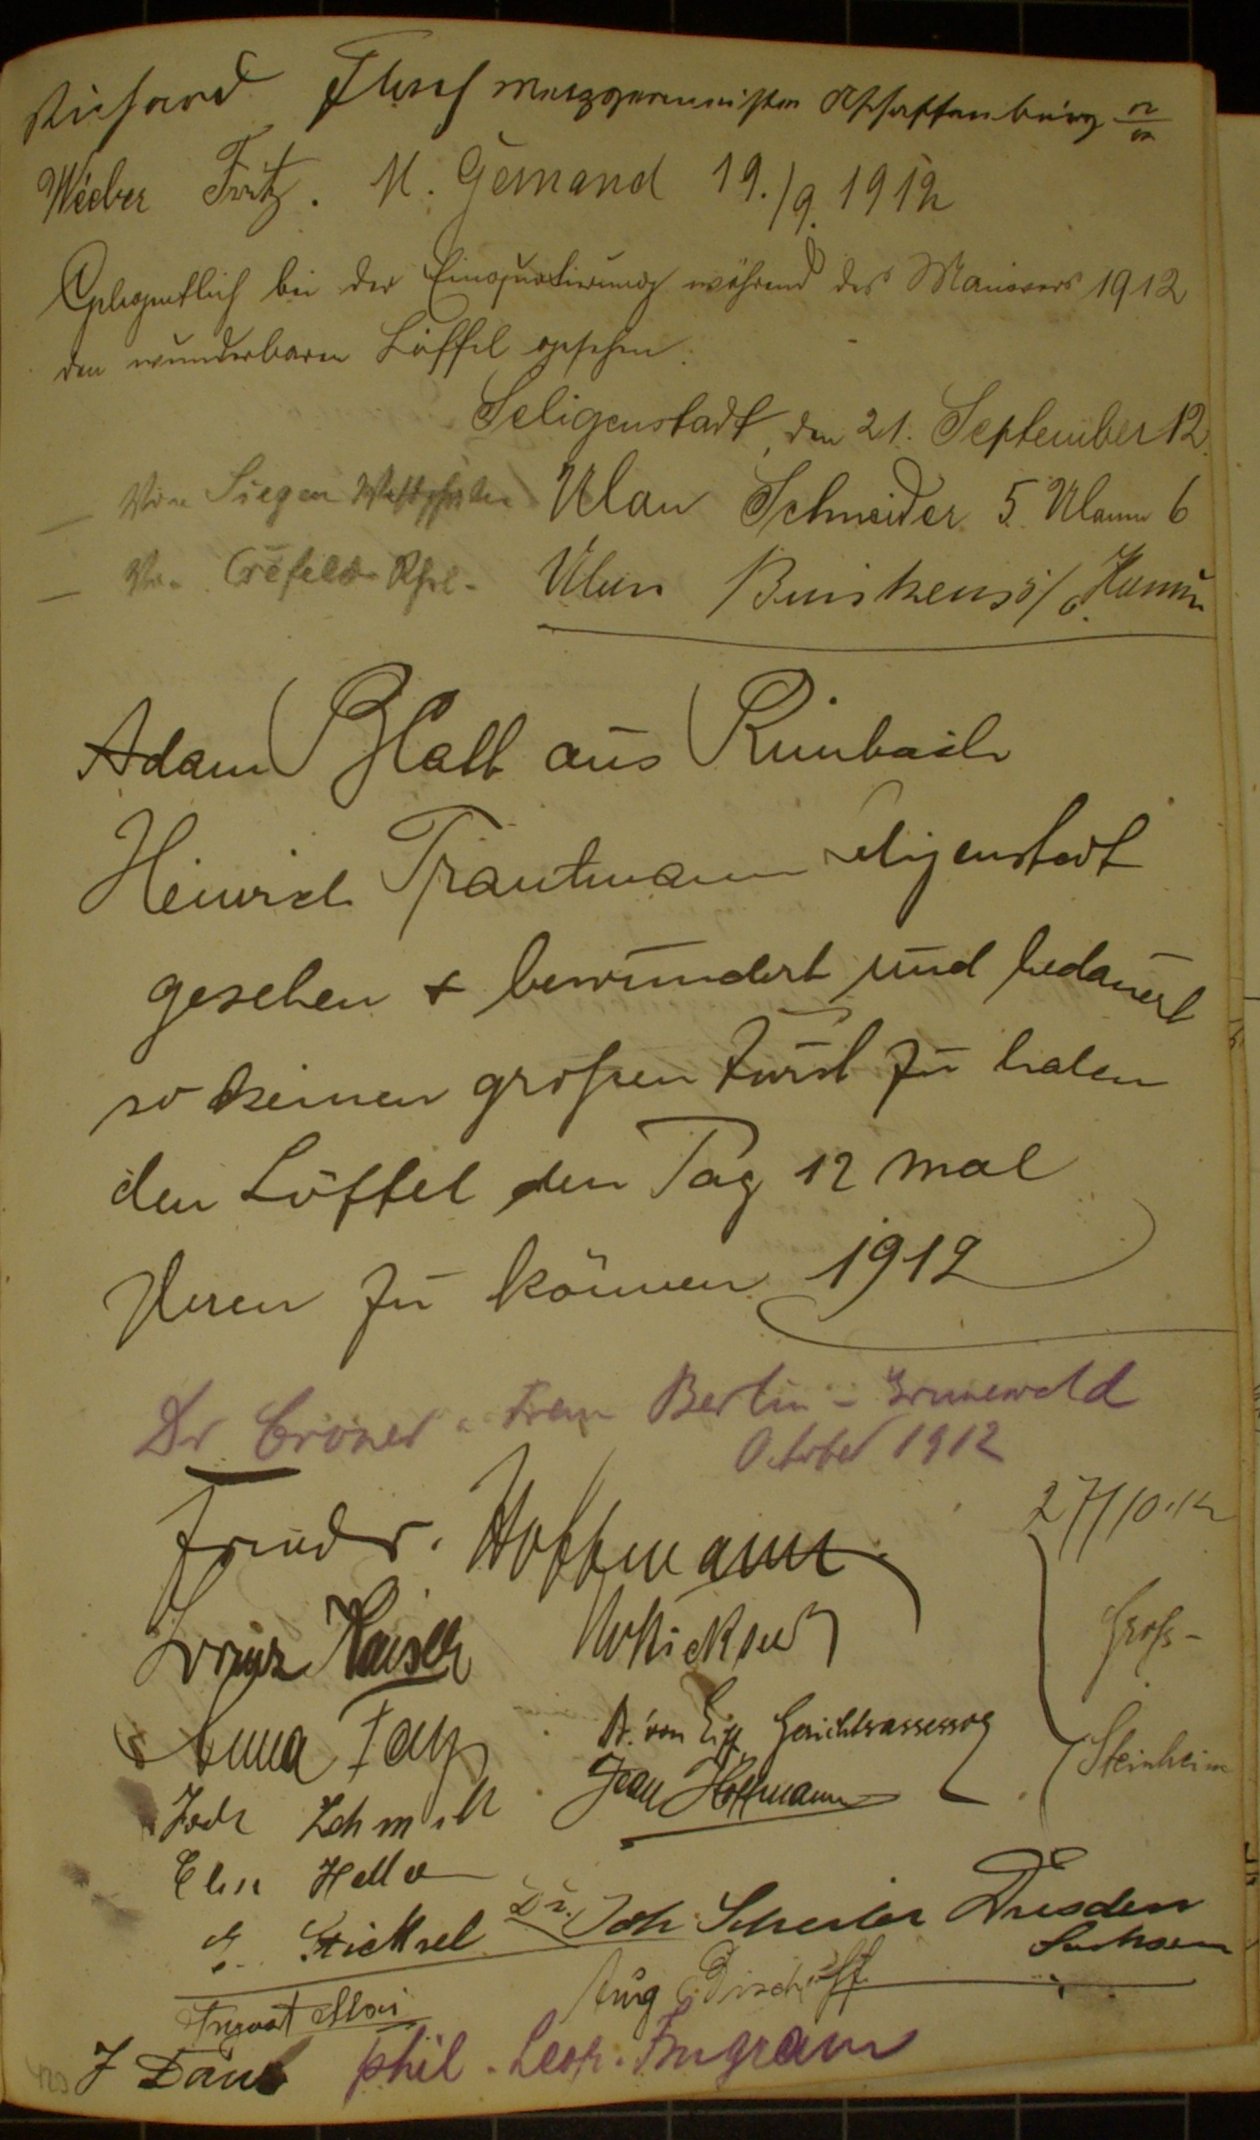 Richard Flesch Metzgermeister Aschaffenburg
Weber Fritz. M. Gernand 19./9. 1912
Gelegentlich bei der Einquatirung während des Manövers 1912
den wunderbaren Löffel gesehen.
Seligenstadt, den 21. September 12.
Von Siegen Westphalen Ulan Schneider 5. Ulanen 6
Von Crefeld Ulan 5/6. Hanau
Adam Blatt aus Rimbach
Heinrich Trautmann Seligenstadt
gesehen + bewundert und bedauert
so keinen großen Durst zu haben
den Löffel den Tag 12 mal
leeren zu können 1912
Dr Cröner u. Frau Berlin-Grunewald
October 1912
Friedr. Hoffmann 27/10.12
Franz Kaiser
Groß-
Anna Dr. von Gerichtsassessor
Steinheim
Schmitt Jean Hoffmann
Elise Heller
G. Sticksel Dr. Joh. Dresden
Sachsen
Aug Bischoff
J Daus phil. Leop. Ingram